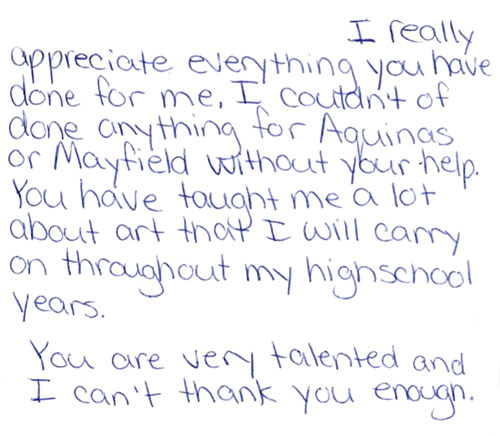 I really
appreciate everything you have
done for me, I couldn't of
done anything for Aquinas
or Mayfield without your help.
You have taught me a lot
about art that I will carry
on throughout my highschool
years.
You are very talented and
I can't thank you enough.